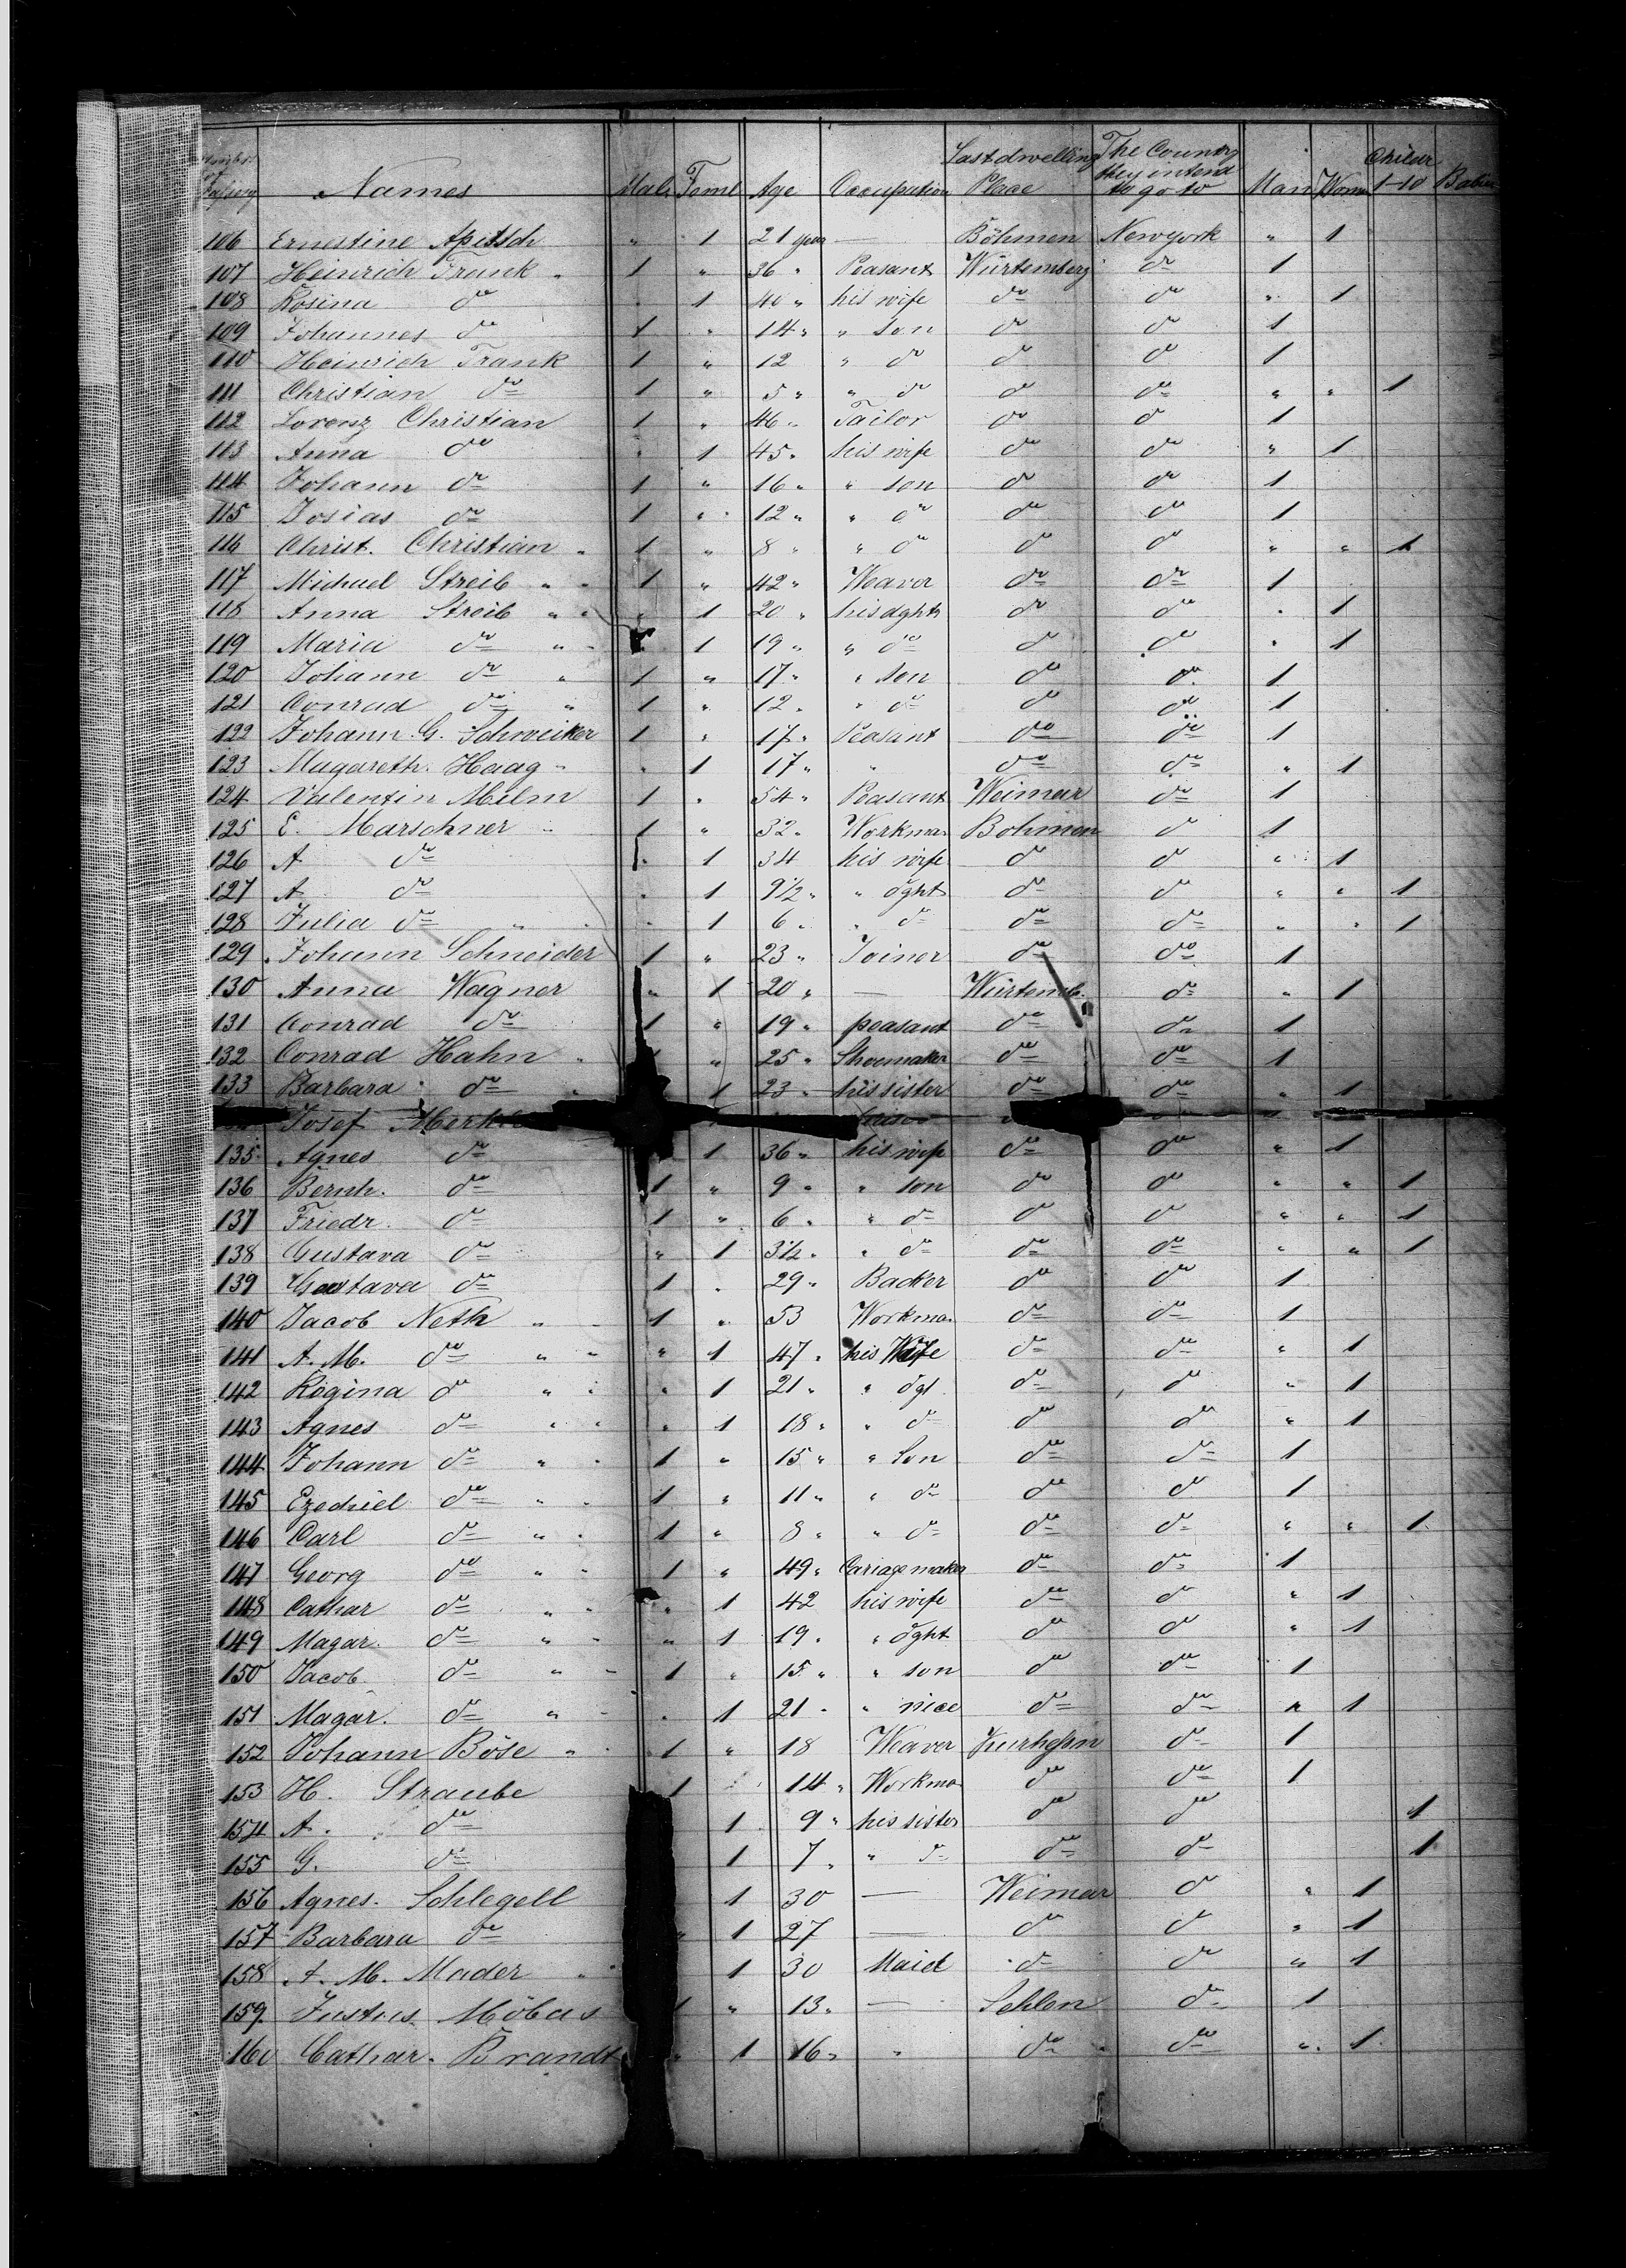 Names Male Feml Age Occupation Last dwelling Place The Country they intend to go to Man Wom 1-10 Babies
106 Ernestine Apitsch " 1 21 years — Böhmen Newyork " 1
107 Heinrich Frank " 1 " 36 " Peasant Würtemberg do 1
108 Rosina do " 1 40 " his wife do do " 1
109 Johannes do 1 " 14 " " son do do 1
110 Heinrich Frank 1 " 12 " do do do 1
111 Christian do 1 " 5 " " do do do " " 1
112 Lorenz Christian 1 " 46 " Tailor do do 1
113 Anna do " 1 45 " his wife do do " 1
114 Johann do 1 " 16 " " son do do 1
115 Josias do 1 " 12 " " do do do 1
116 Christ. Christian " 1 " 8 " " do do do " " 1
117 Michael Streib " " 1 " 42 " Weaver do do 1
118 Anna Streib " " " 1 20 " his dghtr do do " 1
119 Maria do " " 1 19 " " do do do " 1
120 Johann do " 1 " 17 " " son do do 1
121 Conrad do " 1 " 12 " " do do do 1
122 Johann G. Schweiker 1 " 17 " Peasant do do 1
123 Magareth. Haag " " 1 17 " " do do " 1
124 Valentin Milm 1 " 54 " Peasant Weimar do 1
125 E. Marschner " 1 " 32 " Workma Bohmen do 1
126 A do " 1 34 his wife do do " 1
127 A do " 1 9 1/2 " " dght do do " " 1
128 Julia do " " 1 6 " " do do do " " 1
129 Johann Schneider 1 " 23 " Joiner do do 1
130 Anna Wagner " 1 20 " — Würtemb. do " 1
131 Conrad do 1 " 19 " peasant do do 1
132 Conrad Hahn " " 25 " Shoemaker do do 1
133 Barbara do 1 23 " his sister do do " 1
Josef
135 Agnes do 1 36 " his wife do do " 1
136 Bernh. do 1 " 9 " " son do do " " 1
137 Friedr. do 1 " 6 " " do do do " " 1
138 Gustava do " 1 3 1/2 " " do do do " " 1
139 Gustava do 1 " 29 " Backer do do 1
140 Jacob Neth " 1 " 53 Workma. do do 1
141 A. M. do " " " 1 47 " his Wife do do " 1
142 Rögina do " " " 1 21 " " dgt. do do " 1
143 Agnes do " " " 1 18 " " do do do " 1
144 Johann do " " 1 " 15 " " Son do do 1
145 Ezechiel do " " 1 " 11 " " do do do 1
146 Carl do " " 1 " 8 " " do do do " " 1
147 Georg do " " 1 " 49 " Cariagemaker do do 1
148 Cathar do " " " 1 42 his wife do do " 1
149 Magar. do " " " 1 19 " " dght do do " 1
150 Jacob do " " 1 " 15 " " son do do 1
151 Magar. do " " " 1 21 " " niece do do " 1
152 Johann Böse " 1 " 18 Weaver Kurhessn do 1
153 H. Straube 1 14 " Workma do do 1
154 A. do 1 9 " his sister do do 1
155 G. do 1 7 " " do do do 1
156 Agnes. Schlegell 1 30 — Weimar do " 1
157 Barbara do " 1 27 — do do " 1
158 A. M. Mader " 1 30 Maid do do " 1
159 Justus Möbus " 13 " — Sehlen do 1
160 Cathar. Brandt 1 16 " " do do " 1